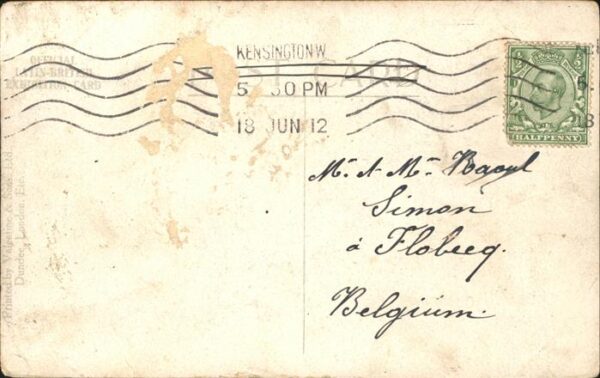 OFFICIAL
LATIN-BRITISH
EXHIBITION CARD
KENSINGTON.W.
POST CARD
5. 30 PM
18 JUN 12
HALFPENNY
Mr. & Mme. Raoul
Simon
à Flobecq.
Belgium.
Printed by Valentine & Sons, Ltd.
Dundee, London, Etc.